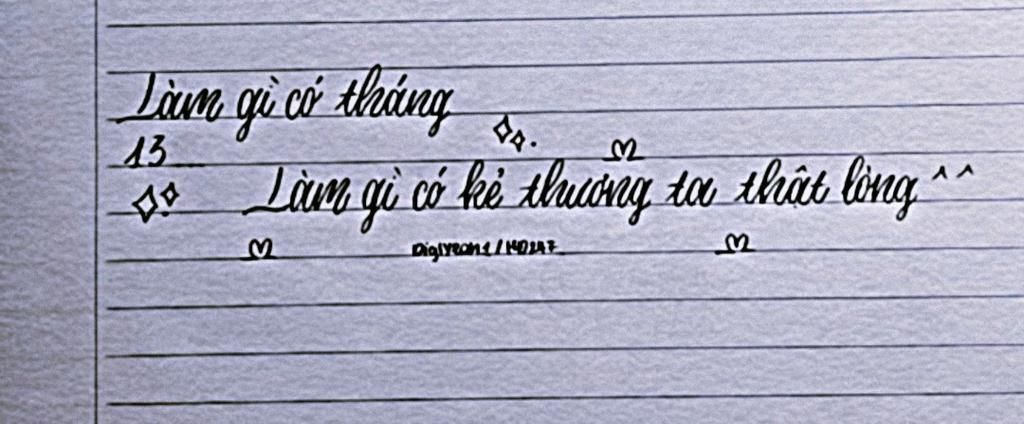 Làm gì có tháng
13
Làm gì có kẻ thương ta thật lòng ^^